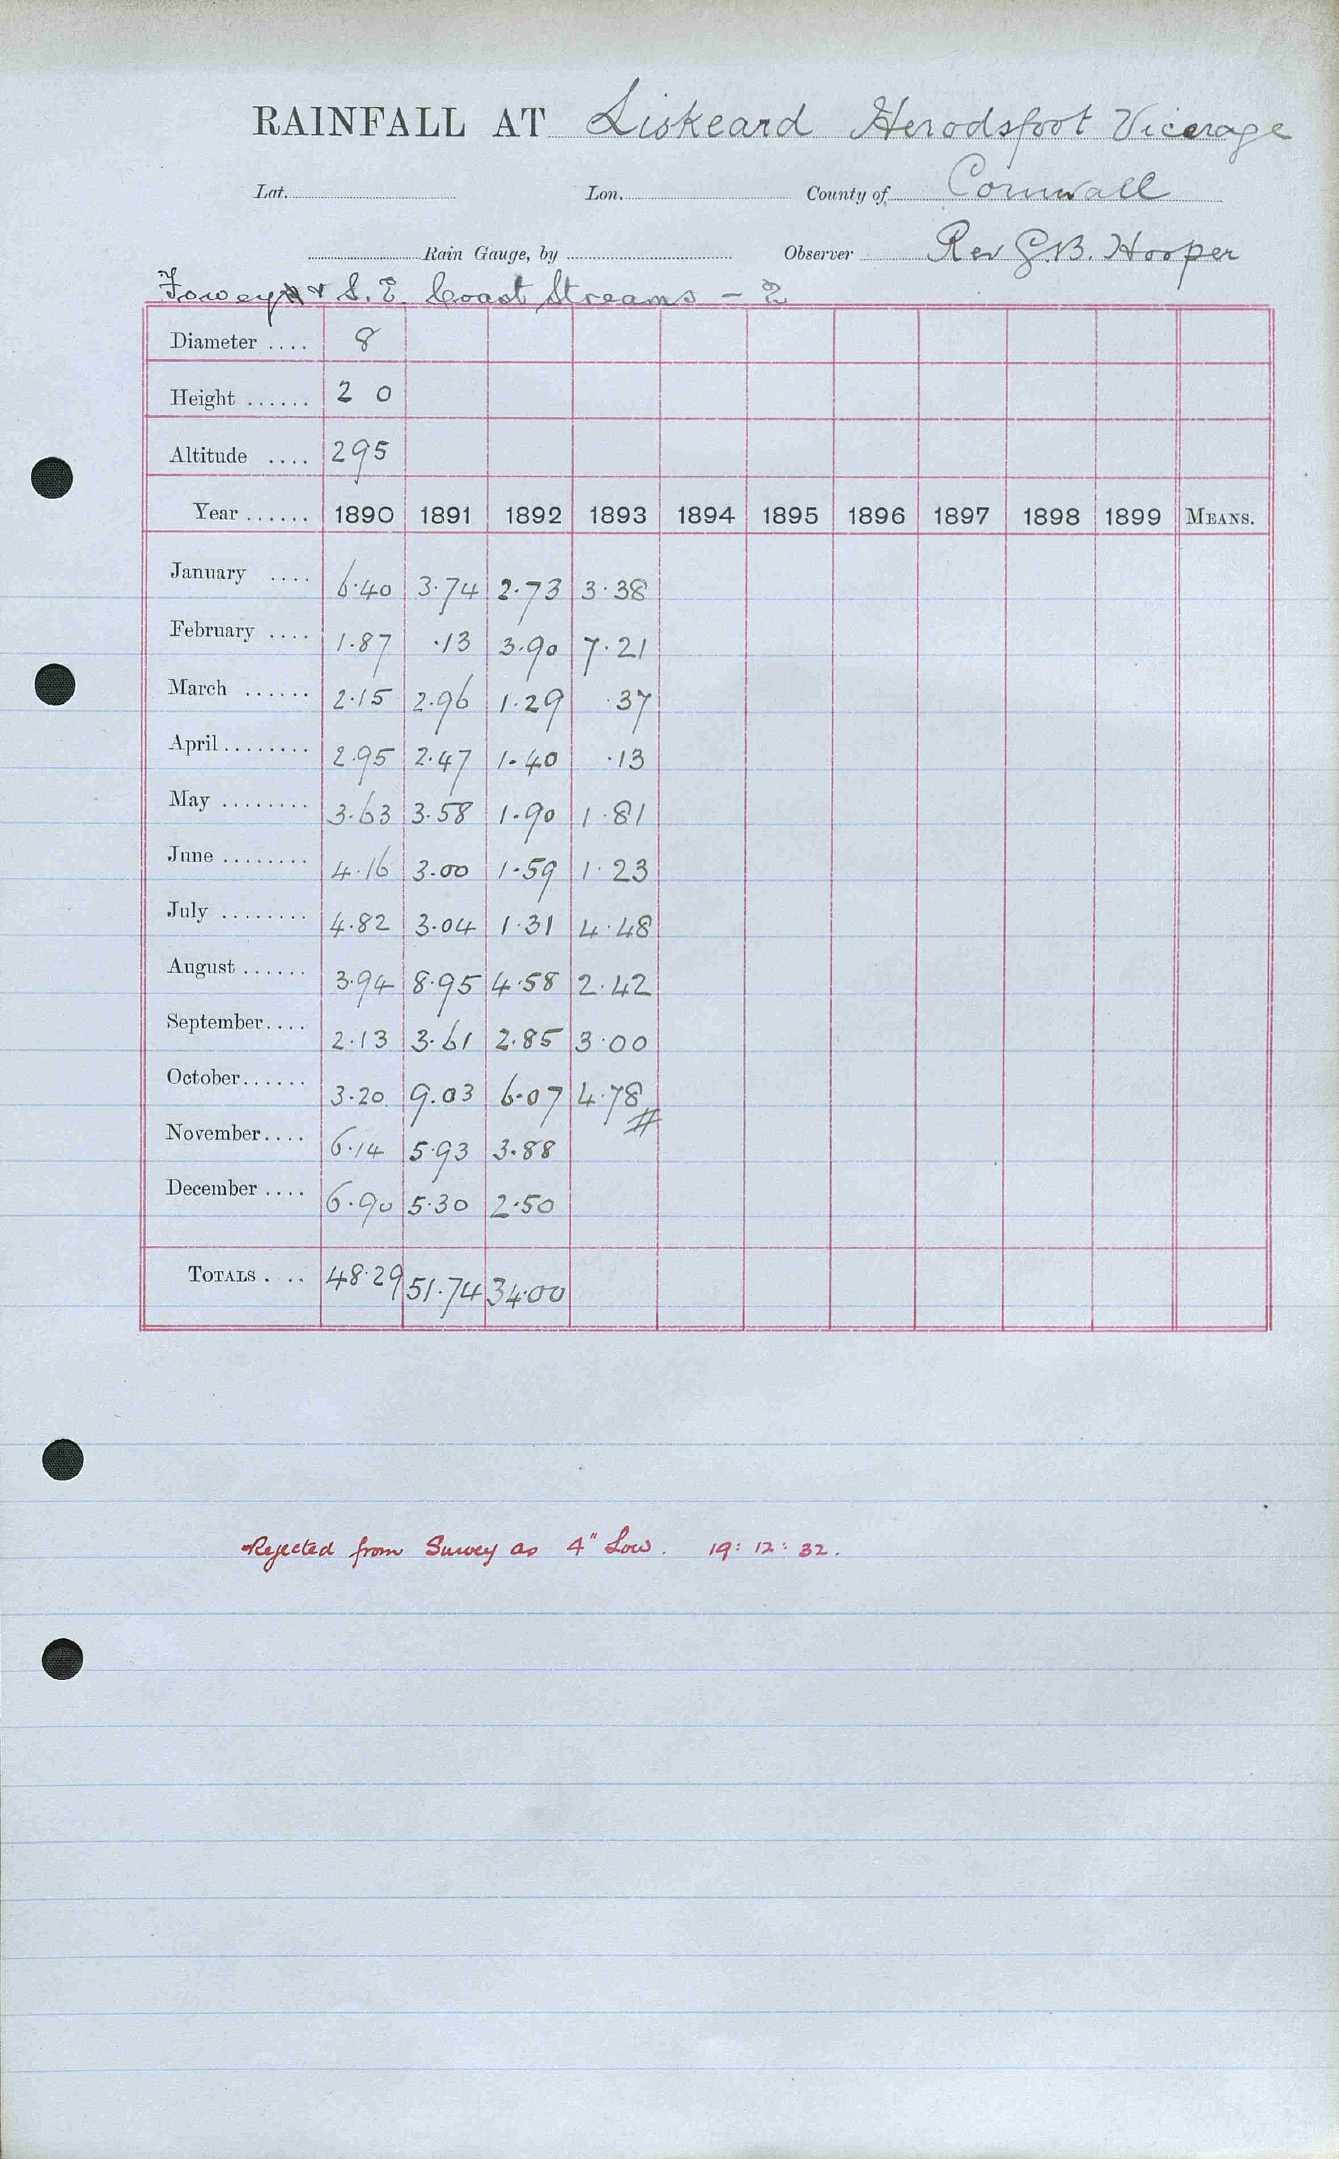 RAINFALL AT Liskeard Herodsfoot Vicarage
Lat. Lon. County of Cornwall
Rain Gauge, by Observer Rev G.B. Hooper
Fowey & S. E. Coast Streams - 2
Diameter .... 8
Height ...... 2 0
Altitude .... 295
Year ...... 1890 1891 1892 1893 1894 1895 1896 1897 1898 1899 MEANS.
January .... 6.40 3.74 2.73 3.38
February .... 1.87 .13 3.90 7.21
March ...... 2.15 2.96 1.29 .37
April ........ 2.95 2.47 1.40 .13
May ........ 3.63 3.58 1.90 1.81
June ........ 4.16 3.00 1.59 1.23
July ........ 4.82 3.04 1.31 4.48
August ...... 3.94 8.95 4.58 2.42
September.... 2.13 3.61 2.85 3.00
October...... 3.20 9.03 6.07 4.78
November.... 6.14 5.93 3.88
December .... 6.90 5.30 2.50
TOTALS . .. 48.29 51.74 34.00
Rejected from Survey as 4" Low. 19: 12: 32.